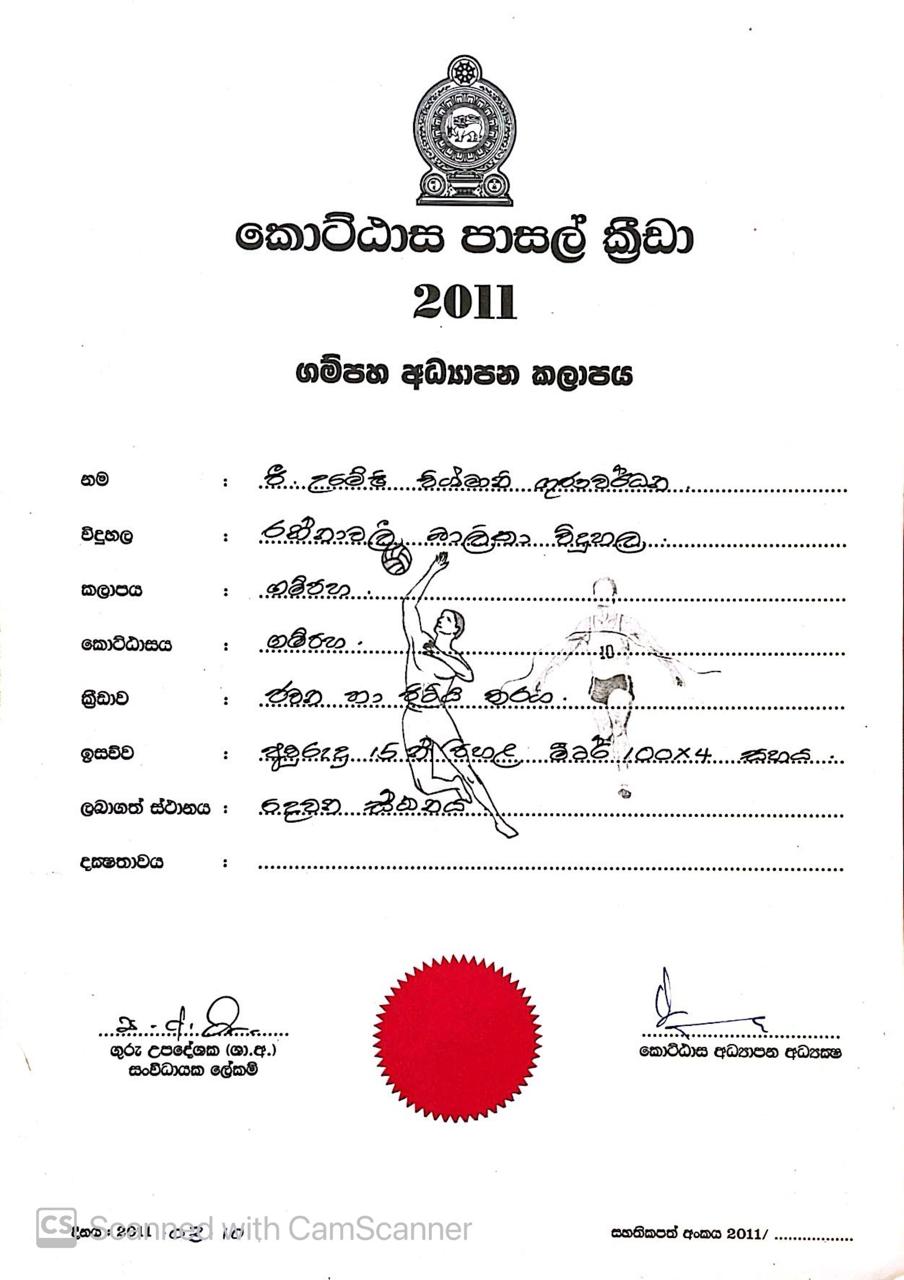 කොට්ඨාස පාසල් ක්‍රීඩා
2011
ගම්පහ අධ්‍යාපන කලාපය
නම : පී. උමේෂි ගුණවර්ධන
විදුහල : රත්නාවලී බාලිකා විදුහල
කලාපය : ගම්පහ
කොට්ඨාසය : ගම්පහ
ක්‍රීඩාව : ජවන හා පිටිය තරග
ඉසව්ව : අවුරුදු 15 න් පහළ මීටර් 100x4 සහය
ලබාගත් ස්ථානය : දෙවන ස්ථානය
දක්‍ෂතාවය :
ගුරු උපදේශක (ශා.අ.)
සංවිධායක ලේකම්
කොට්ඨාස අධ්‍යාපන අධ්‍යක්‍ෂ
දිනය : 2011
සහතිකපත් අංකය 2011/
CS Scanned with CamScanner
10